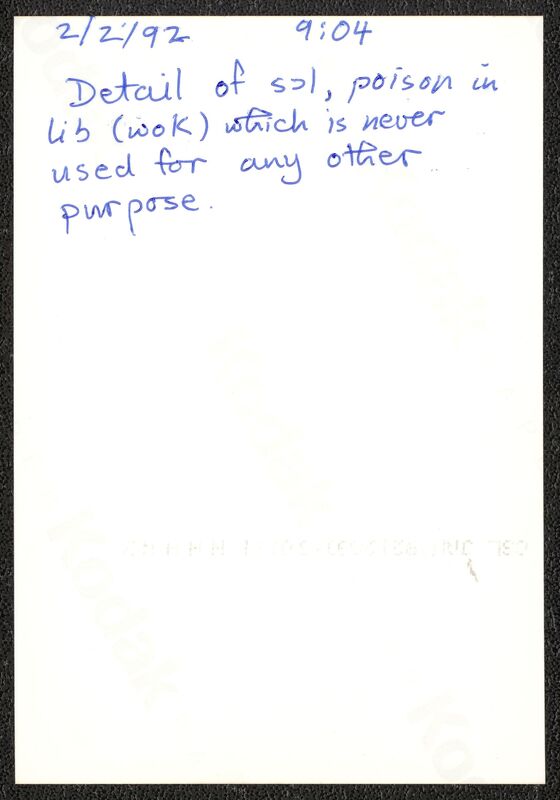 2/2/92 9:04
Detail of sɔl, poison in
lib (wok) which is never
used for any other
purpose.
Kodak
Kodak
Kodak